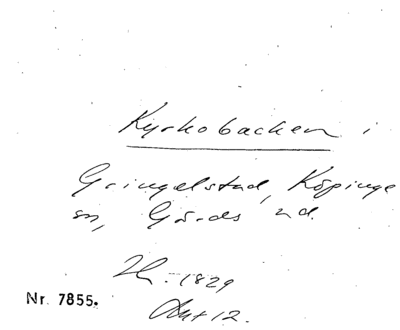 Kyrkobacken i
Gringelstad, Köpinge
sn, Gärds hd.
1829
Akt 12.
Nr. 7855.